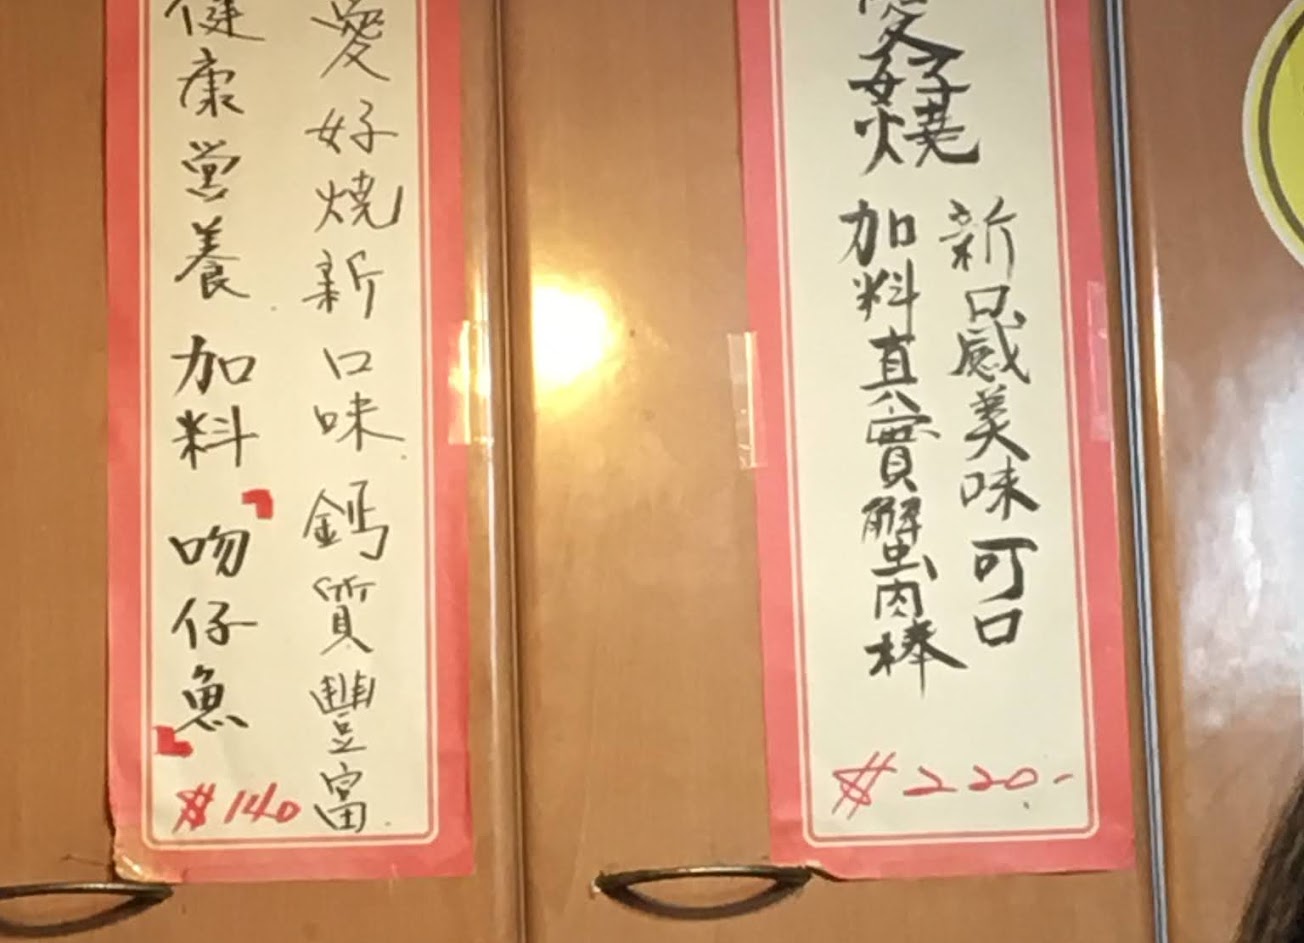 愛好燒新口味鈣質豐富
健康營養 加料「吻仔魚」
$140
愛好燒
新口感美味可口
加料真實蟹肉棒
$220-